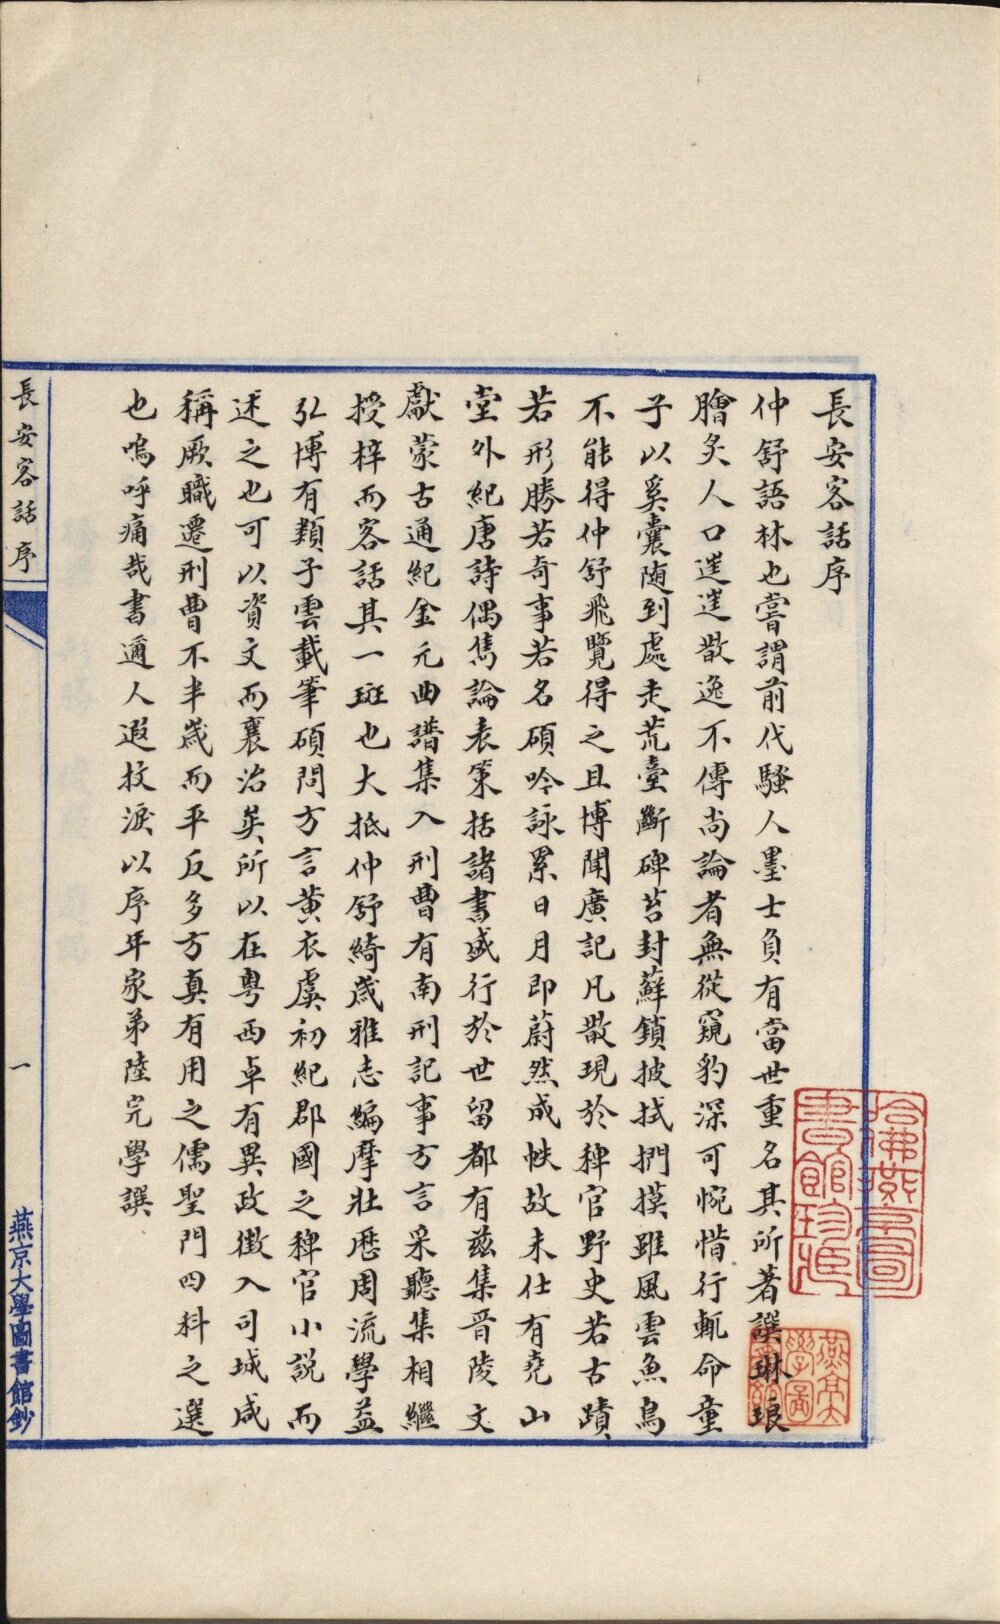 長安客話序
仲舒語林也嘗謂前代騷人墨士負有當世重名其所著譔琳琅
膾炙人口迸迸散逸不傳尚論者無從窺豹深可惋惜行輒命童
子以奚囊随到處走荒臺斷碑苔封蘚鎖披拭捫摸雖風雲魚鳥
不能得仲舒飛覽得之且博聞廣記凡散現於稗官野史若古蹟
若形勝若奇事若名碩吟詠累日月即蔚然成帙故未仕有堯山
堂外紀唐詩偶雋論表策括諸書盛行於世留都有茲集晉陵文
獻蒙古通紀金元曲譜集入刑曹有南刑記事方言采聽集相繼
授梓而客話其一斑也大抵仲舒綺歲雅志編摩壯歷周流學益
弘博有類子雲載筆碩問方言黃衣虞初紀郡國之稗官小說而
述之也可以資文而襄治矣所以在粵西卓有異政徵入司城咸
稱厥職遷刑曹不半歲而平反多方真有用之儒聖門四科之選
也嗚呼痛哉書邇人遐抆淚以序年家弟陸完學譔
長安客話序
一
燕京大學圖書館鈔
哈佛燕京圖
書館珍藏
燕京大
學圖